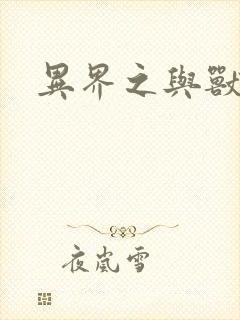 異界之與獸
夜嵐雪